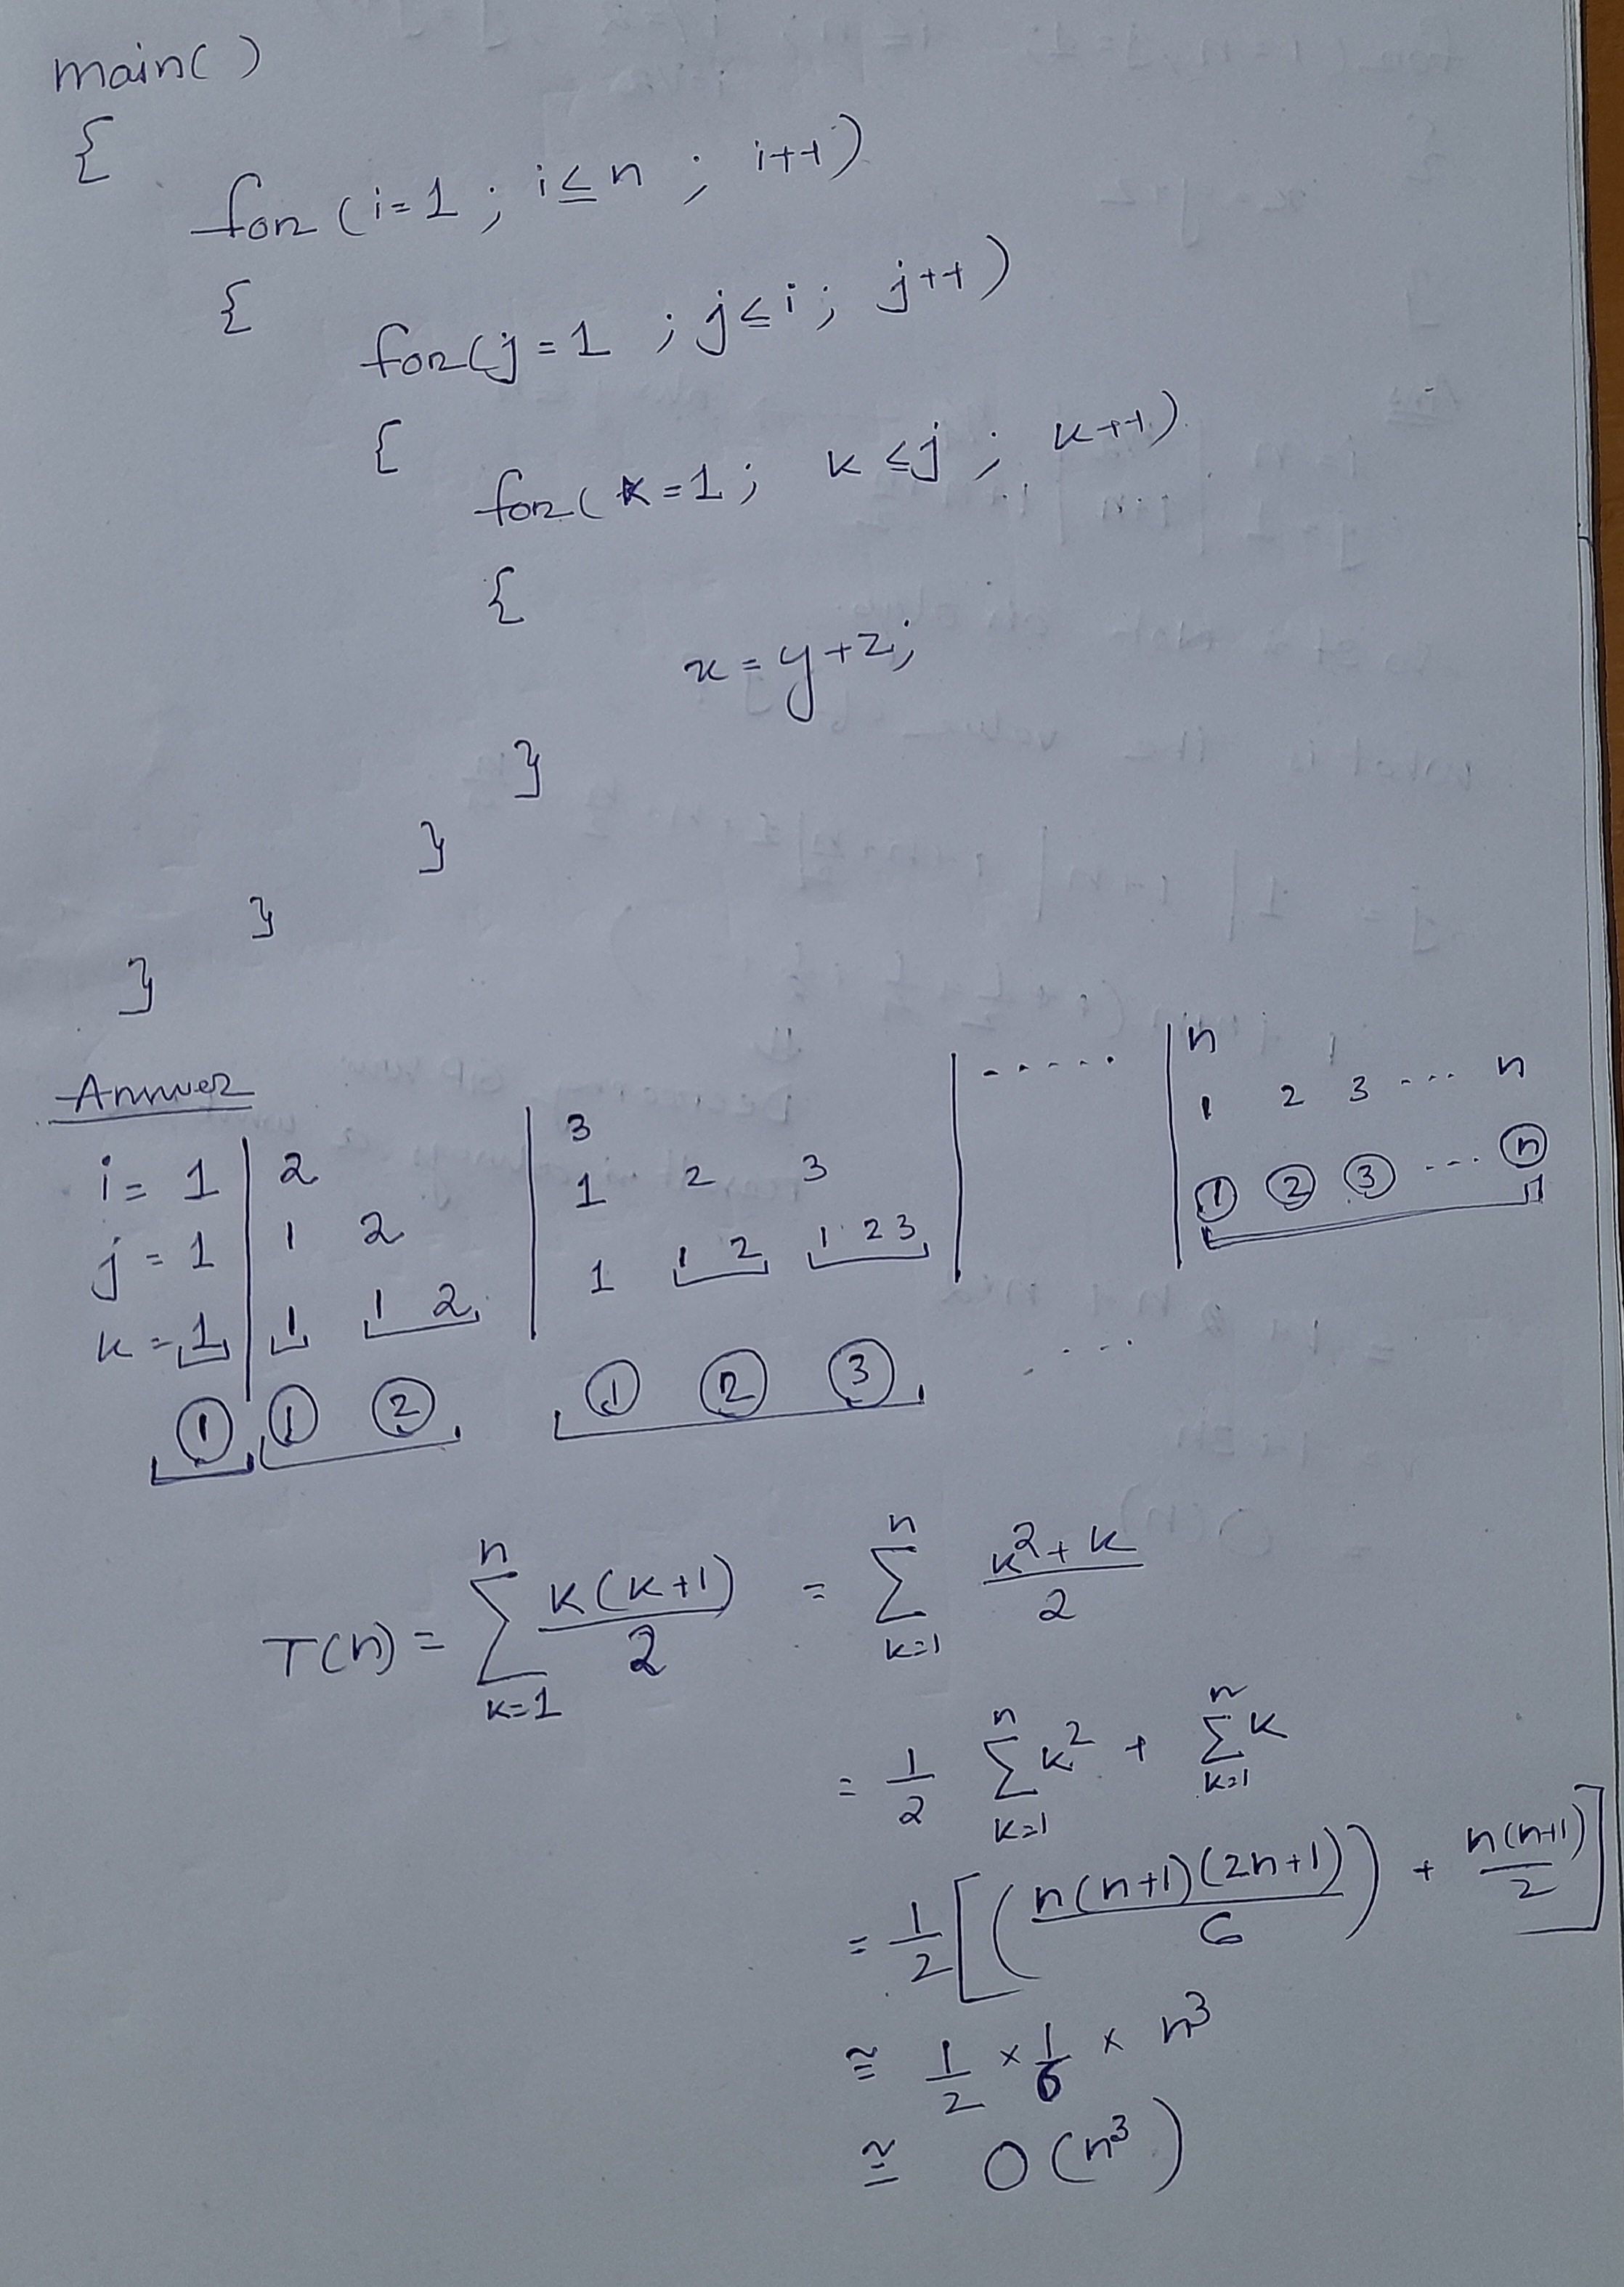 main()
{
for (i=1 ; i≤n ; i++)
{
for(j=1 ; j≤i ; j++)
{
for(k=1; k≤j ; k++)
{
x=y+z;
}
}
}
}
Answer
i= 1 | 2 | 3 | ..... | n
j=1 | 1 2 | 1 2 3 | | 1 2 3 ... n
k=1 | 1 1 2 | 1 1 2 1 2 3 | | ① ② ③ ... ⓝ
① ① ② ① ② ③ ....
T(n) = \sum_{k=1}^{n} \frac{k(k+1)}{2} = \sum_{k=1}^{n} \frac{k^2+k}{2}
= \frac{1}{2} \sum_{k=1}^{n} k^2 + \sum_{k=1}^{n} k
= \frac{1}{2} [ ( \frac{n(n+1)(2n+1)}{6} ) + \frac{n(n+1)}{2} ]
≅ \frac{1}{2} × \frac{1}{6} × n^3
≅ O(n^3)